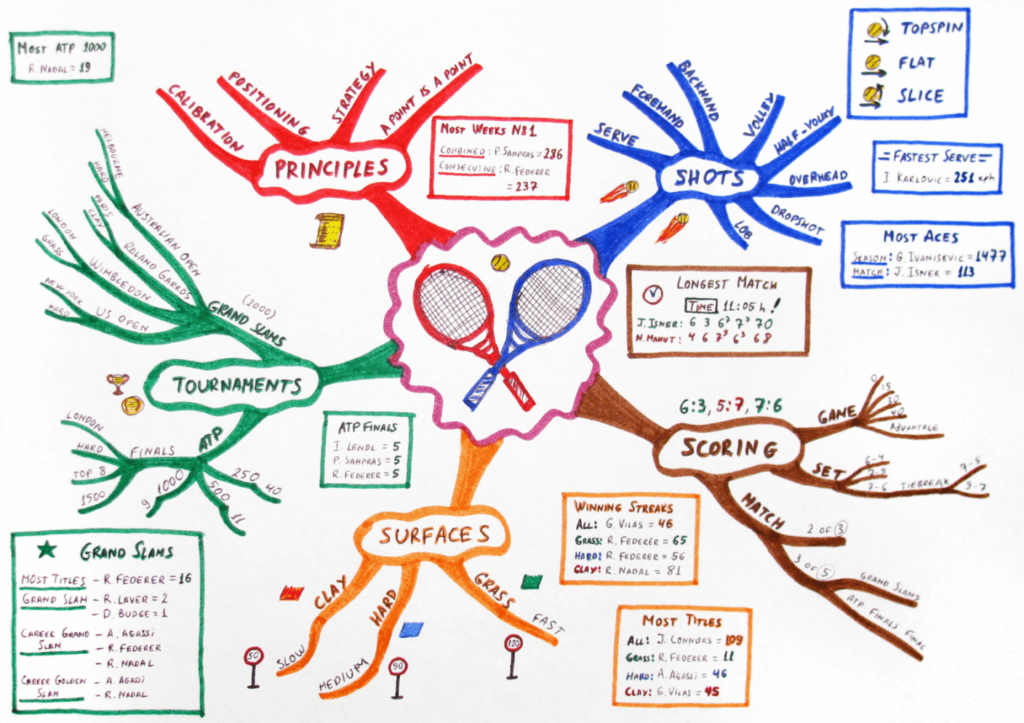 MOST ATP 1000
R. NADAL = 19
CALIBRATION
POSITIONING
STRATEGY
A POINT IS A POINT
PRINCIPLES
MOST WEEKS Nº1
COMBINED: P. SAMPRAS = 286
CONSECUTIVE: R. FEDERER
= 237
SERVE
FOREHAND
BACKHAND
VOLLEY
HALF-VOLLEY
OVERHEAD
DROPSHOT
LOB
SHOTS
TOPSPIN
FLAT
SLICE
= FASTEST SERVE =
I. KARLOVIC = 251 KPH
MOST ACES
SEASON: G. IVANISEVIC = 1477
MATCH: J. ISNER = 113
LONGEST MATCH
TIME 11:05 h!
J. ISNER: 6 3 6⁷ 7⁷ 70
N. MAHUT: 4 6 7⁹ 6³ 68
MELBOURNE
HARD
AUSTRALIAN OPEN
PARIS
CLAY
ROLAND GARROS
LONDON
GRASS
WIMBLEDON
NEW YORK
HARD
US OPEN
GRAND SLAMS
(2000)
TOURNAMENTS
ATP
FINALS
LONDON
HARD
TOP 8
1500
1000
9
500
11
250
40
ATP FINALS
I. LENDL = 5
P. SAMPRAS = 5
R. FEDERER = 5
6:3, 5:7, 7:6
SCORING
GAME
0
15
30
40
ADVANTAGE
SET
6-4
7-5
7-6
TIEBREAK
7-5
9-7
MATCH
2 OF 3
3 OF 5
GRAND SLAMS
ATP FINALS FINAL
SURFACES
CLAY
SLOW
HARD
MEDIUM
GRASS
FAST
50
90
120
WINNING STREAKS
ALL: G. VILAS = 46
GRASS: R. FEDERER = 65
HARD: R. FEDERER = 56
CLAY: R. NADAL = 81
MOST TITLES
ALL: J. CONNORS = 109
GRASS: R. FEDERER = 11
HARD: A. AGASSI = 46
CLAY: G. VILAS = 45
GRAND SLAMS
MOST TITLES - R. FEDERER = 16
GRAND SLAM - R. LAVER = 2
- D. BUDGE = 1
CAREER GRAND - A. AGASSI
SLAM - R. FEDERER
- R. NADAL
CAREER GOLDEN - A. AGASSI
SLAM - R. NADAL